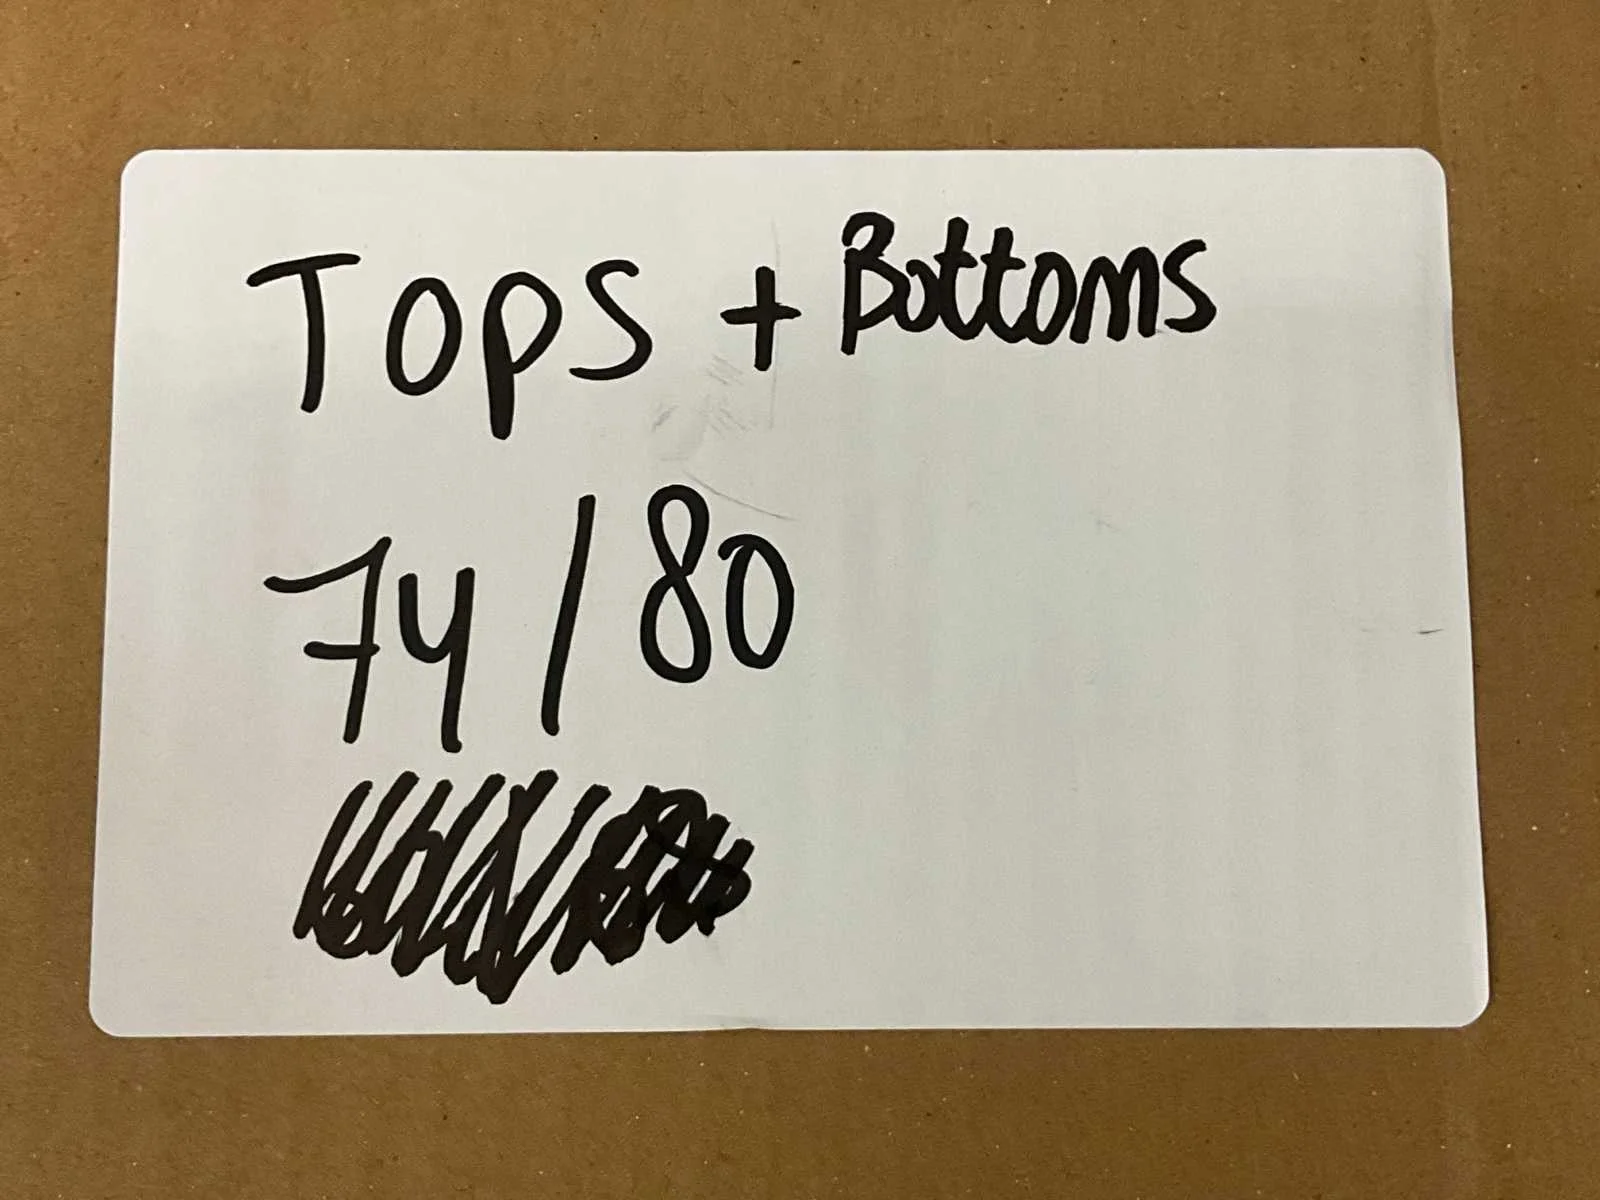 Tops + Bottoms
74/80